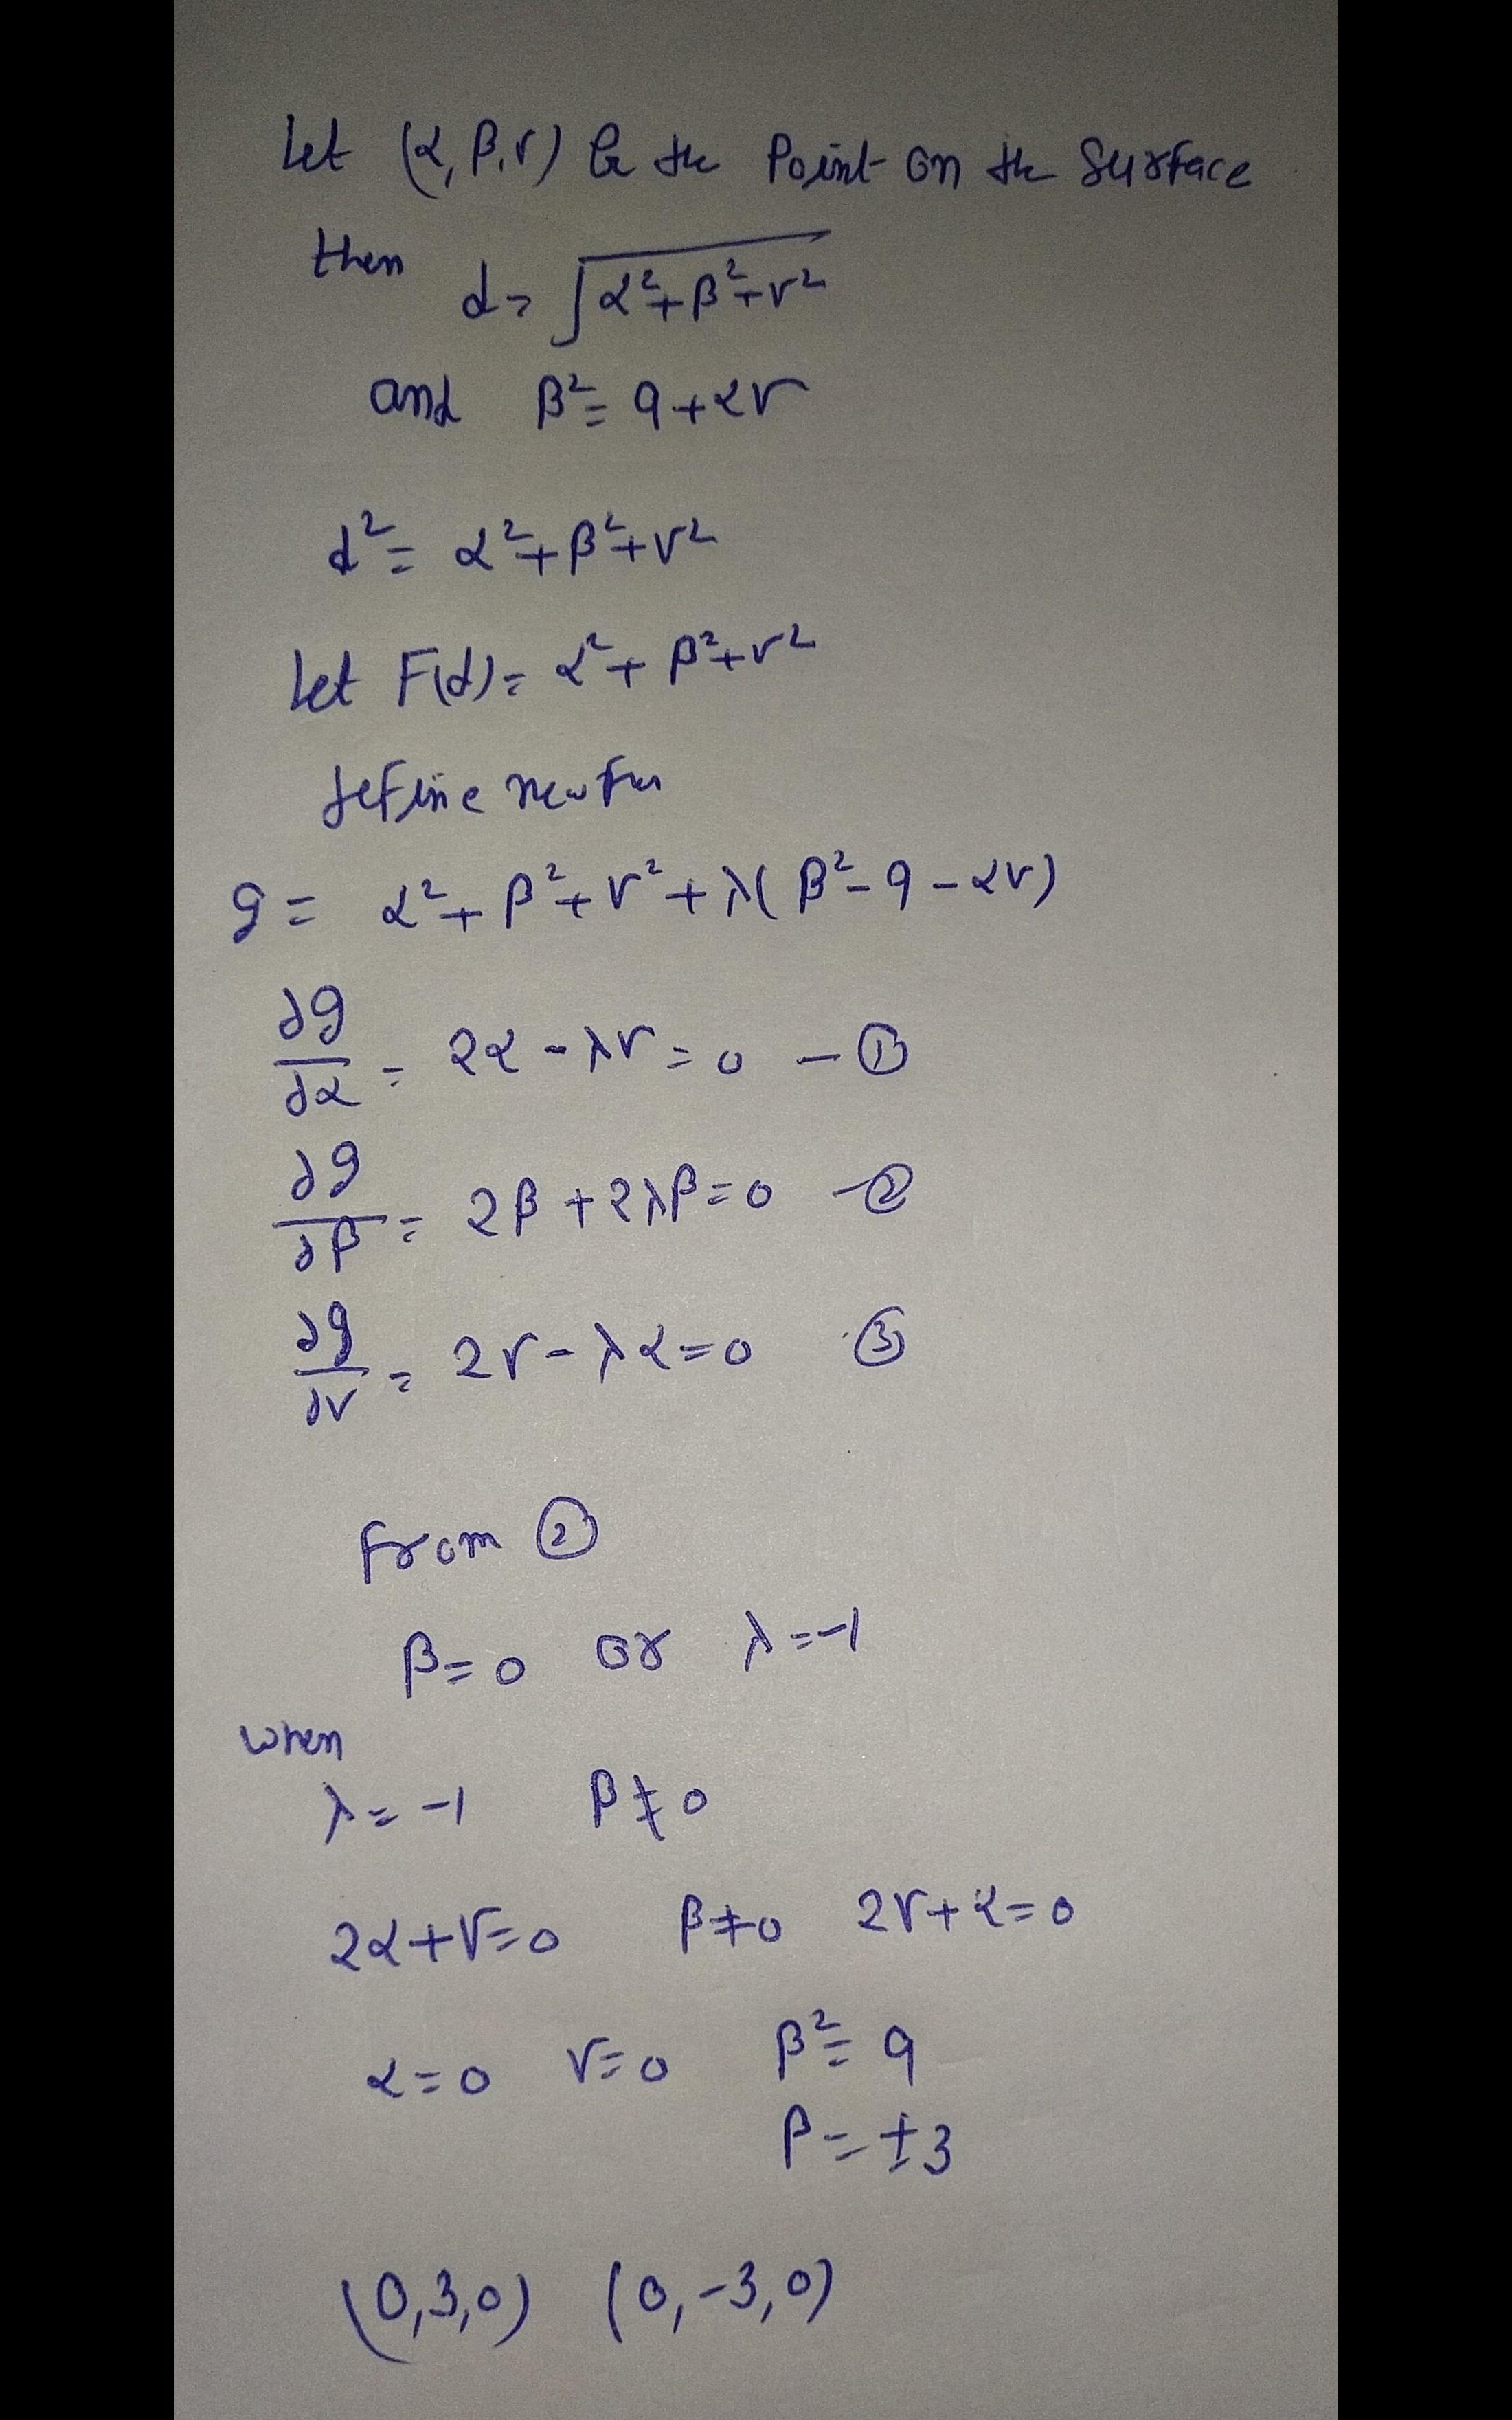 Let (α, β, γ) be the Point on the Surface
then d = √α²+β²+γ²
and β² = 9+αγ
d² = α²+β²+γ²
Let F(d) = α²+β²+γ²
define new fun
g = α²+β²+γ²+λ(β²-9-αγ)
∂g/∂α = 2α-λγ=0 -①
∂g/∂β = 2β+2λβ=0 -②
∂g/∂γ = 2γ-λα=0 ③
From ②
β=0 or λ=-1
when
λ=-1 β≠0
2α+γ=0 β≠0 2γ+α=0
α=0 γ=0 β²=9
β=±3
(0,3,0) (0,-3,0)